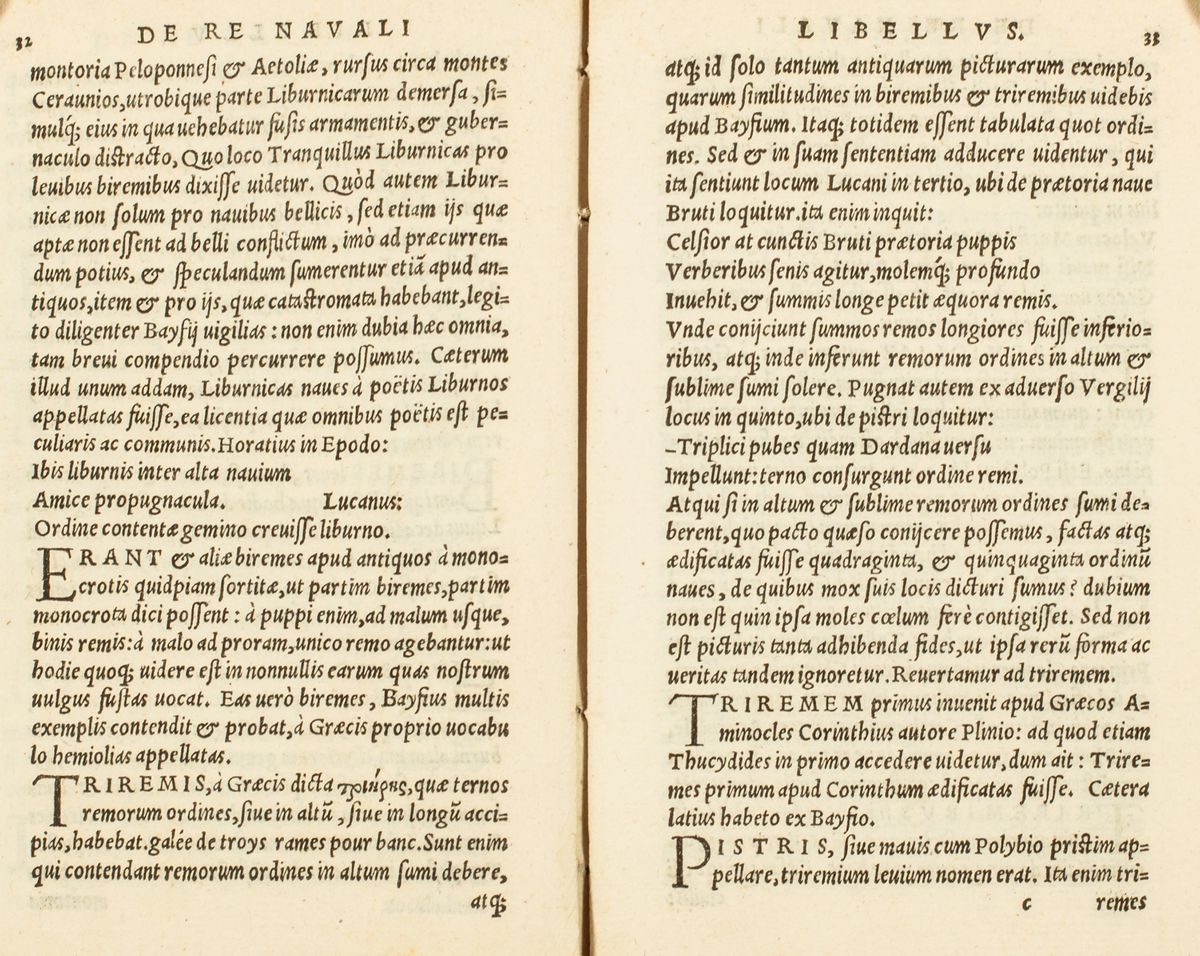 32 DE RE NAVALI
montoria Peloponnesi & Aetoliæ, rursus circa montes
Ceraunios, utrobique parte Liburnicarum demersa, si=
mulq; eius in qua uehebatur fusis armamentis, & guber=
naculo distracto, Quo loco Tranquillus Liburnicas pro
leuibus biremibus dixisse uidetur. Quòd autem Libur=
nicæ non solum pro nauibus bellicis, sed etiam ijs quæ
aptæ non essent ad belli conflictum, imò ad præcurren=
dum potius, & speculandum sumerentur etiā apud an=
tiquos, item & pro ijs, quæ catastromata habebant, legi=
to diligenter Bayfij uigilias: non enim dubia hæc omnia,
tam breui compendio percurrere possumus. Cæterum
illud unum addam, Liburnicas naues à poëtis Liburnos
appellatas fuisse, ea licentia quæ omnibus poëtis est pe=
culiaris ac communis. Horatius in Epodo:
Ibis liburnis inter alta nauium
Amice propugnacula. Lucanus:
Ordine contentæ gemino creuisse liburno.
ERANT & aliæ biremes apud antiquos à mono=
crotis quidpiam sortitæ, ut partim biremes, partim
monocrota dici possent: à puppi enim, ad malum usque,
binis remis: à malo ad proram, unico remo agebantur: ut
hodie quoq; uidere est in nonnullis earum quas nostrum
uulgus fustas uocat. Eas uerò biremes, Bayfius multis
exemplis contendit & probat, à Græcis proprio uocabu
lo hemiolias appellatas.
TRIREMIS, à Græcis dicta τριήρης, quæ ternos
remorum ordines, siue in altū, siue in longū acci=
pias, habebat. galée de troys rames pour banc. Sunt enim
qui contendant remorum ordines in altum sumi debere,
atq;
LIBELLVS. 33
atq; id solo tantum antiquarum picturarum exemplo,
quarum similitudines in biremibus & triremibus uidebis
apud Bayfium. Itaq; totidem essent tabulata quot ordi=
nes. Sed & in suam sententiam adducere uidentur, qui
ita sentiunt locum Lucani in tertio, ubi de prætoria naue
Bruti loquitur. ita enim inquit:
Celsior at cunctis Bruti prætoria puppis
Verberibus senis agitur, molemq́; profundo
Inuehit, & summis longe petit æquora remis.
Vnde conijciunt summos remos longiores fuisse inferio=
ribus, atq; inde inferunt remorum ordines in altum &
sublime sumi solere. Pugnat autem ex aduerso Vergilij
locus in quinto, ubi de pistri loquitur:
–Triplici pubes quam Dardana uersu
Impellunt: terno consurgunt ordine remi.
Atqui si in altum & sublime remorum ordines sumi de=
berent, quo pacto quæso conijcere possemus, factas atq;
ædificatas fuisse quadraginta, & quinquaginta ordinū
naues, de quibus mox suis locis dicturi sumus? dubium
non est quin ipsa moles cœlum ferè contigisset. Sed non
est picturis tanta adhibenda fides, ut ipsa rerū forma ac
ueritas tandem ignoretur. Reuertamur ad triremem.
TRIREMEM primus inuenit apud Græcos A=
minocles Corinthius autore Plinio: ad quod etiam
Thucydides in primo accedere uidetur, dum ait: Trire=
mes primum apud Corinthum ædificatas fuisse. Cætera
latius habeto ex Bayfio.
PISTRIS, siue mauis cum Polybio pristim ap=
pellare, triremium leuium nomen erat. Ita enim tri=
c remes